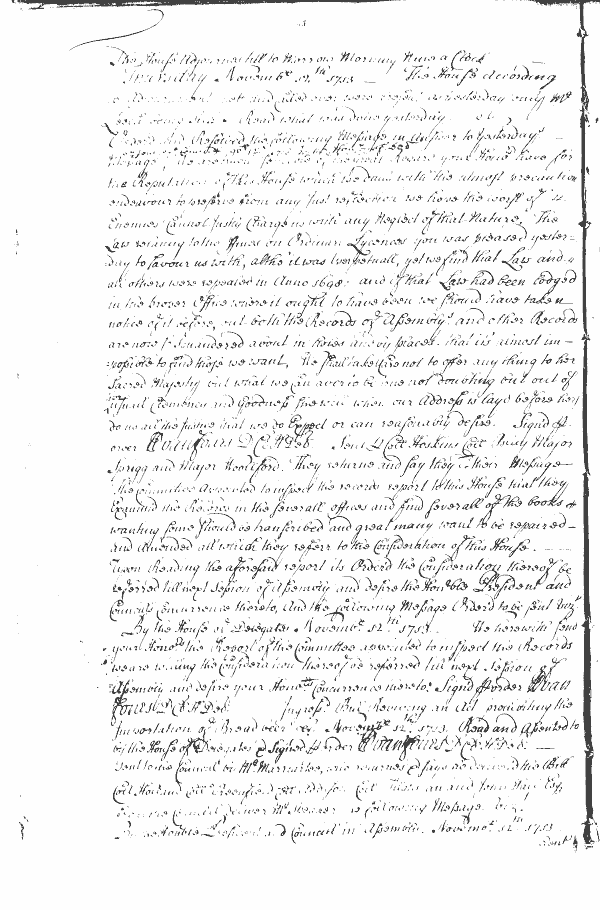 The House Adjourned till to Morrow Morning Nine a Clock
Thursday Novembr 12th 1713 — The House according
to Adjournment met and called over were present as yesterday only Mr
Read what was done yesterday
Order'd and Resolved the following Message in answer to yesterday's
Message,
the Reputation of this House which we claim with the utmost precaution
endeavour to preserve from any Just reflection we have the worst of
Enemies Cannot Justly Charge us with any Neglect of that Nature, The
Law relating to the ffines on Ordinary Lycences you was pleased yester=
day to favour us with, altho it was perpetuall, yet we find that Law and
all others were repealed in Anno 1692: and if that Law had been lodged
in the proper Office where it ought to have been we should have taken
notice of it before, but both the Records of Assembly and other Records
are now so squandered about in holes and by places that its almost im=
possible to find those we want, We shall take Care not to offer any thing to her
Sacred Majesty but what we can averr to be true not doubting but out of
usuall Clemency and Goodness she will when our Address is layd before her
do us all the Justice that we do Expect or can reasonably desire. Signd p
order Evan Jones D Cl H Del. Sent by Coll Hoskins Coll Major
Sprigg and Major They returne and say they their Message
The Committee appointed to inspect the records report to this House that they
Examined the Records in the severall offices and find severall of the books
wanting some should be transcribed and great many want to be repaired
and amended all which they referr to the Consideration of this House.
Upon Reading the aforesaid report its Orderd the Consideration thereof be
referred till next Session of Assembly and desire the Honble President and
Councils Concurrence thereto, And the following Message Orderd to be sent Vizt
By the House of Delegates Novembr 12th 1713. We herewith send
your Honrs the Report of the Committee appointed to inspect the Records
we are willing the Consideration thereof be referred till next Session of
Assembly and desire your Honrs Concurrence thereto Signd p order Evan
Jones D Cl H Del. Ingross'd Bill Reviving an Act prohibiting the
Importation of Bread beer &c. Novembr 12th 1713. Read and Assented to
by the House of Delegates & Signed p order Evan Jones D Cl H Del.
Sent to the Council by Mr who returns & says he delivered the Bill
Coll Coll Greenfield Coll Addison Coll Tilghman and John Hall Esq
from the Council deliver Mr Speaker the following Message Vizt.
By the Honble President and Council in Assembly Novembr 12th 1713